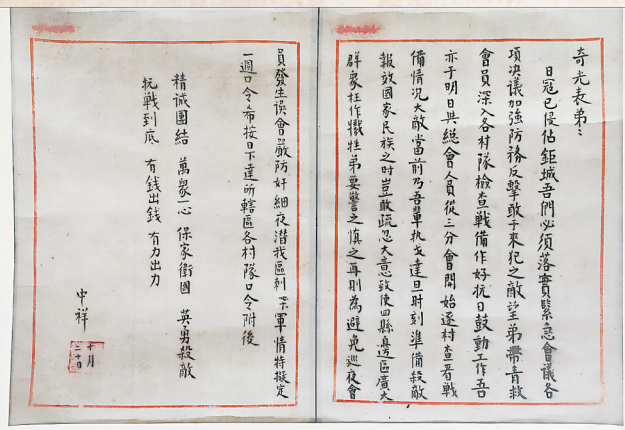 奇光表弟：
日寇已侵佔鉅城吾們必須落實緊急會議各
項决議加强防務反擊敢于來犯之敵望弟帶青救
會員深入各村隊檢查戰備作好抗日鼓動工作吾
亦于明日與總會人員從三分會開始逐村查看戰
備情况大敵當前乃吾輩執戈達旦時刻準備殺敵
報效國家民族之时豈敢疏忽大意致使四縣邊區廣大
群衆枉作犧牲弟要警之慎之再則為避免巡夜會
員發生误會嚴防奸細夜潜我區刺探軍情特擬定
一週口令希按日下達所轄區各村隊口令附後
精诚團結 萬衆一心 保家衛國 英勇殺敵
抗戰到底 有錢出錢 有力出力
中祥
十月
二十日